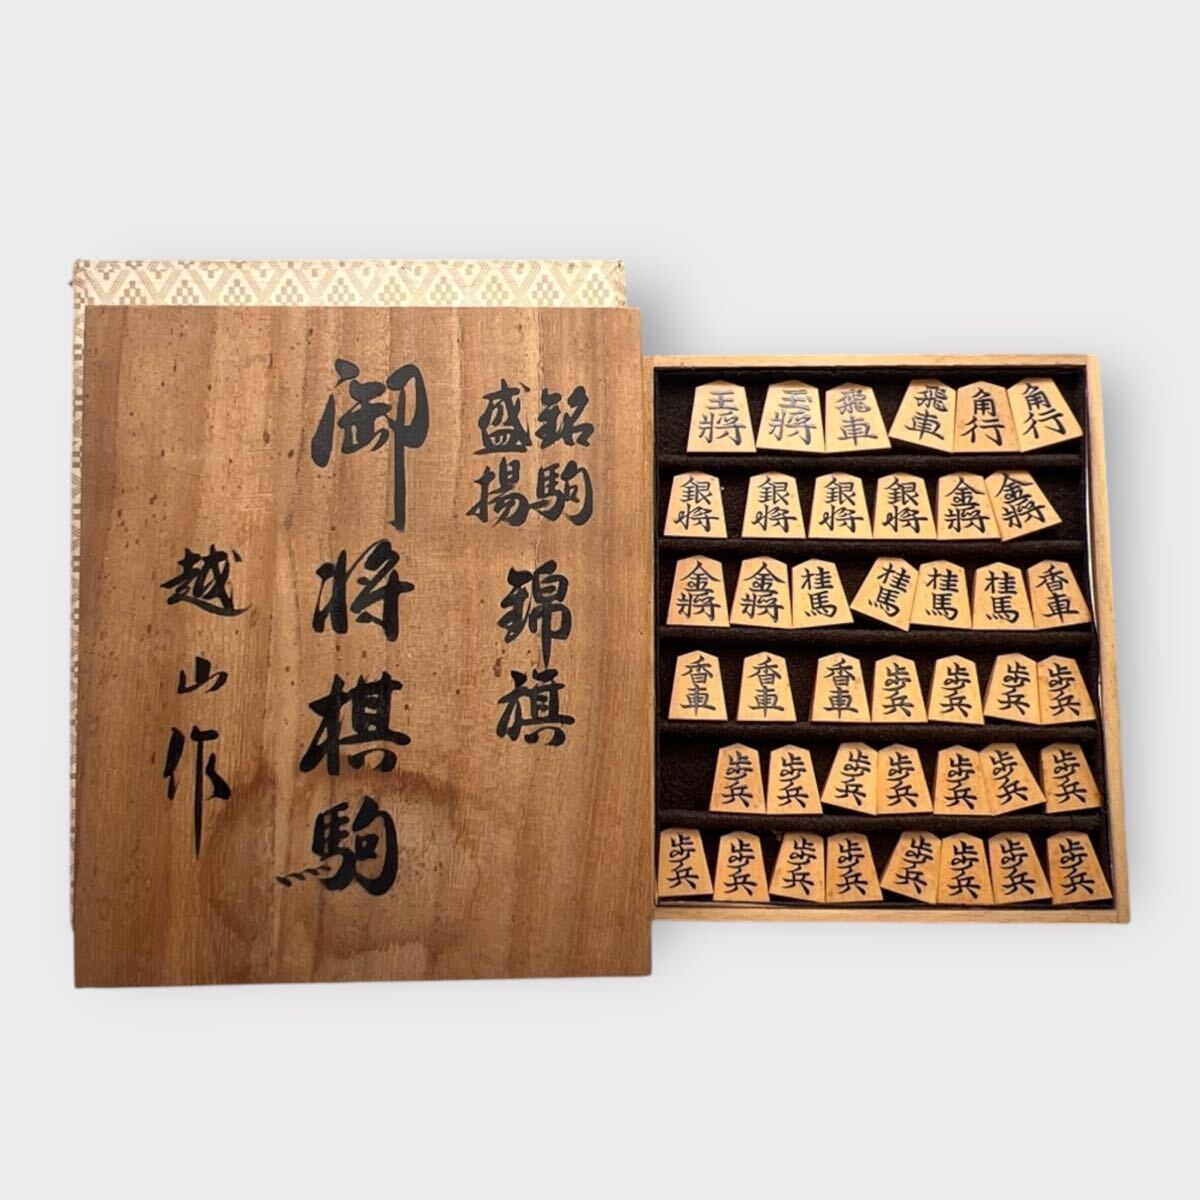 銘駒
盛揚
錦旗
御将棋駒
越山作
王將 玉將 飛車 飛車 角行 角行
銀将 銀将 銀将 銀将 金將 金將
金將 金將 桂馬 桂馬 桂馬 桂馬 香車
香車 香車 香車 歩兵 歩兵 歩兵 歩兵
歩兵 歩兵 歩兵 歩兵 歩兵 歩兵 歩兵
歩兵 歩兵 歩兵 歩兵 歩兵 歩兵 歩兵 歩兵